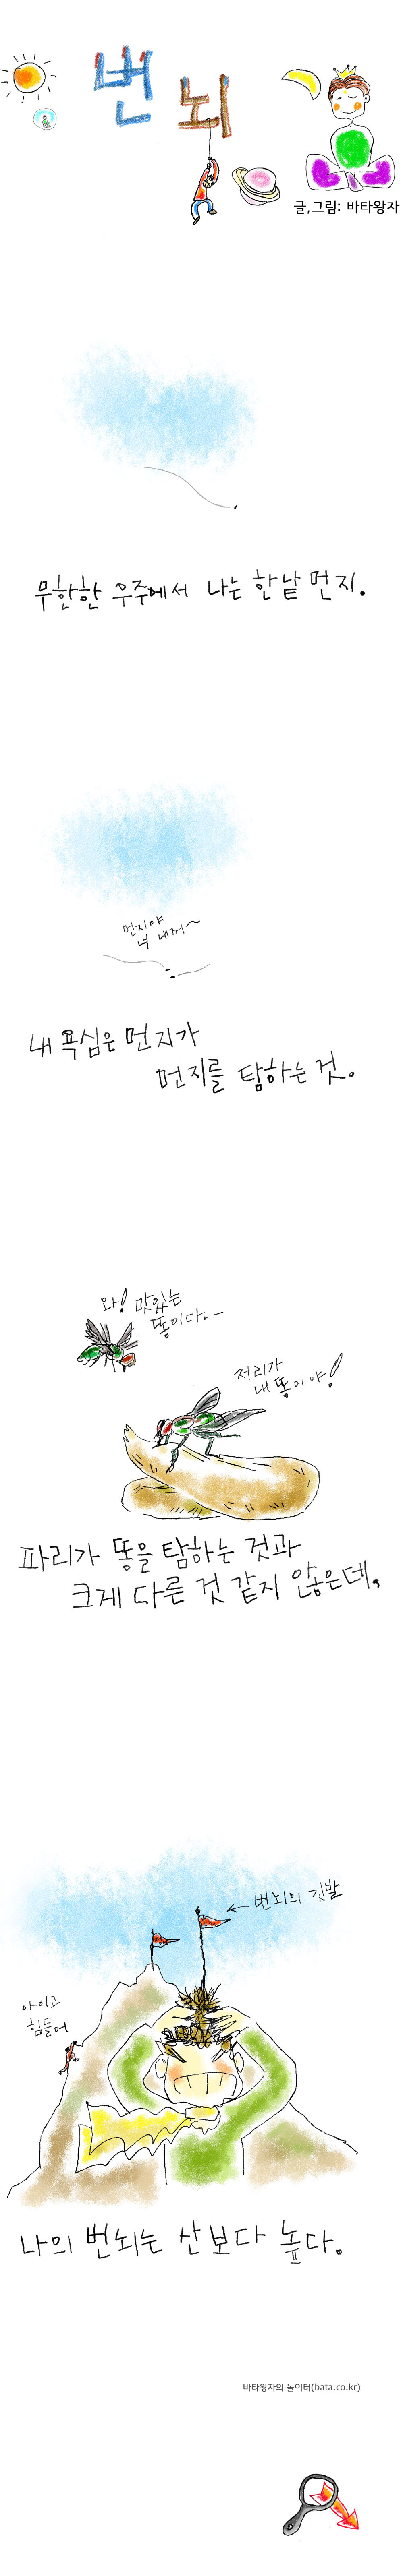 번뇌
글,그림: 바타왕자
무한한 우주에서 나는 한낱 먼지.
먼지야
너 내꺼~
내 욕심은 먼지가
먼지를 탐하는 것.
와! 맛있는
똥이다.~
저리가
내 똥이야!
파리가 똥을 탐하는 것과
크게 다른 것 같지 않은데,
← 번뇌의 깃발
아이고
힘들어
나의 번뇌는 산보다 높다.
바타왕자의 놀이터(bata.co.kr)